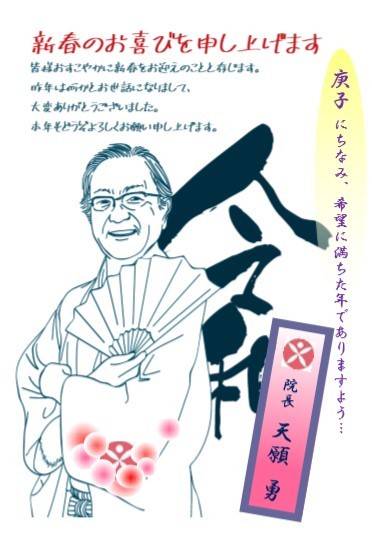 新春のお喜びを申し上げます
皆様おすこやかに新春をお迎えのことと存じます。
昨年は何かとお世話になりまして、
大変ありがとうございました。
本年もどうぞよろしくお願い申し上げます。
庚子 にちなみ、希望に満ちた年でありますよう…
院長 天願 勇